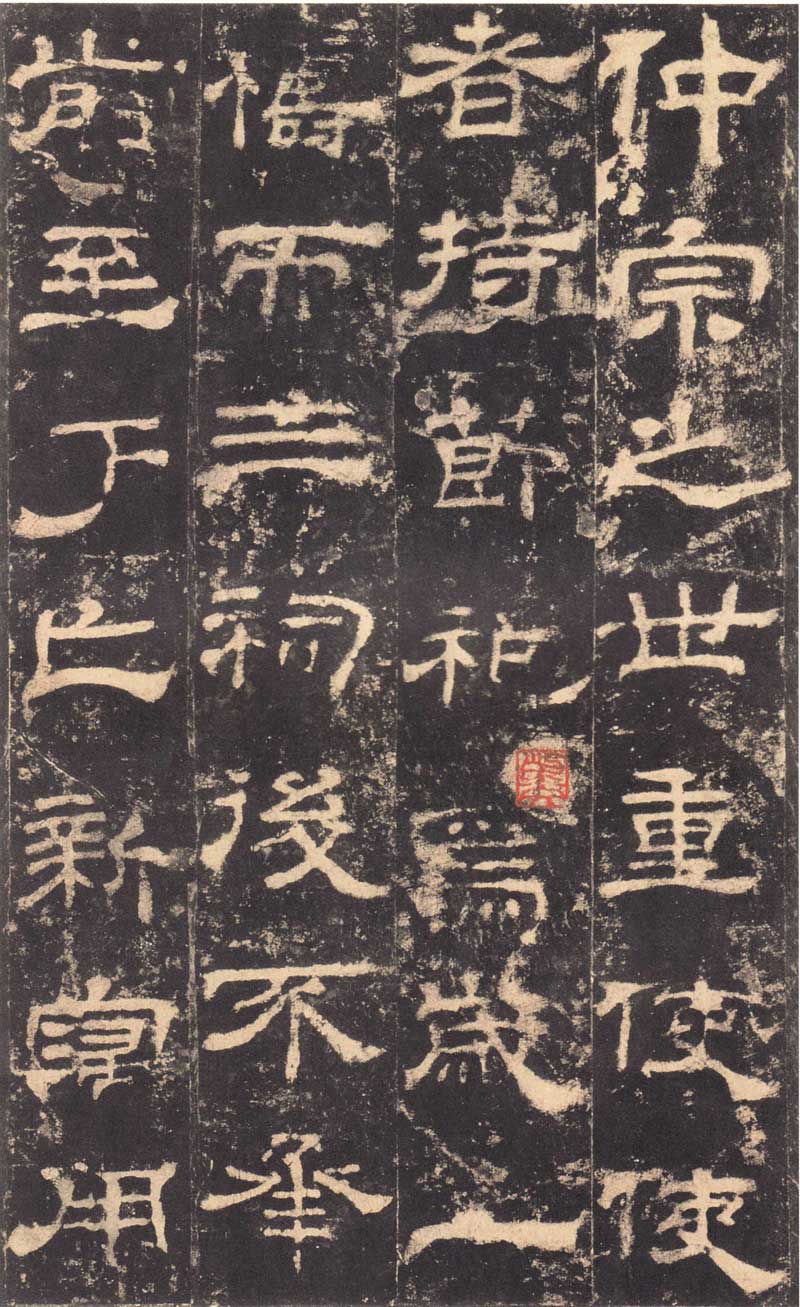 仲宗之世重使使
者持節祀焉歲一
禱而三祠後不承
前至于亡新寖用